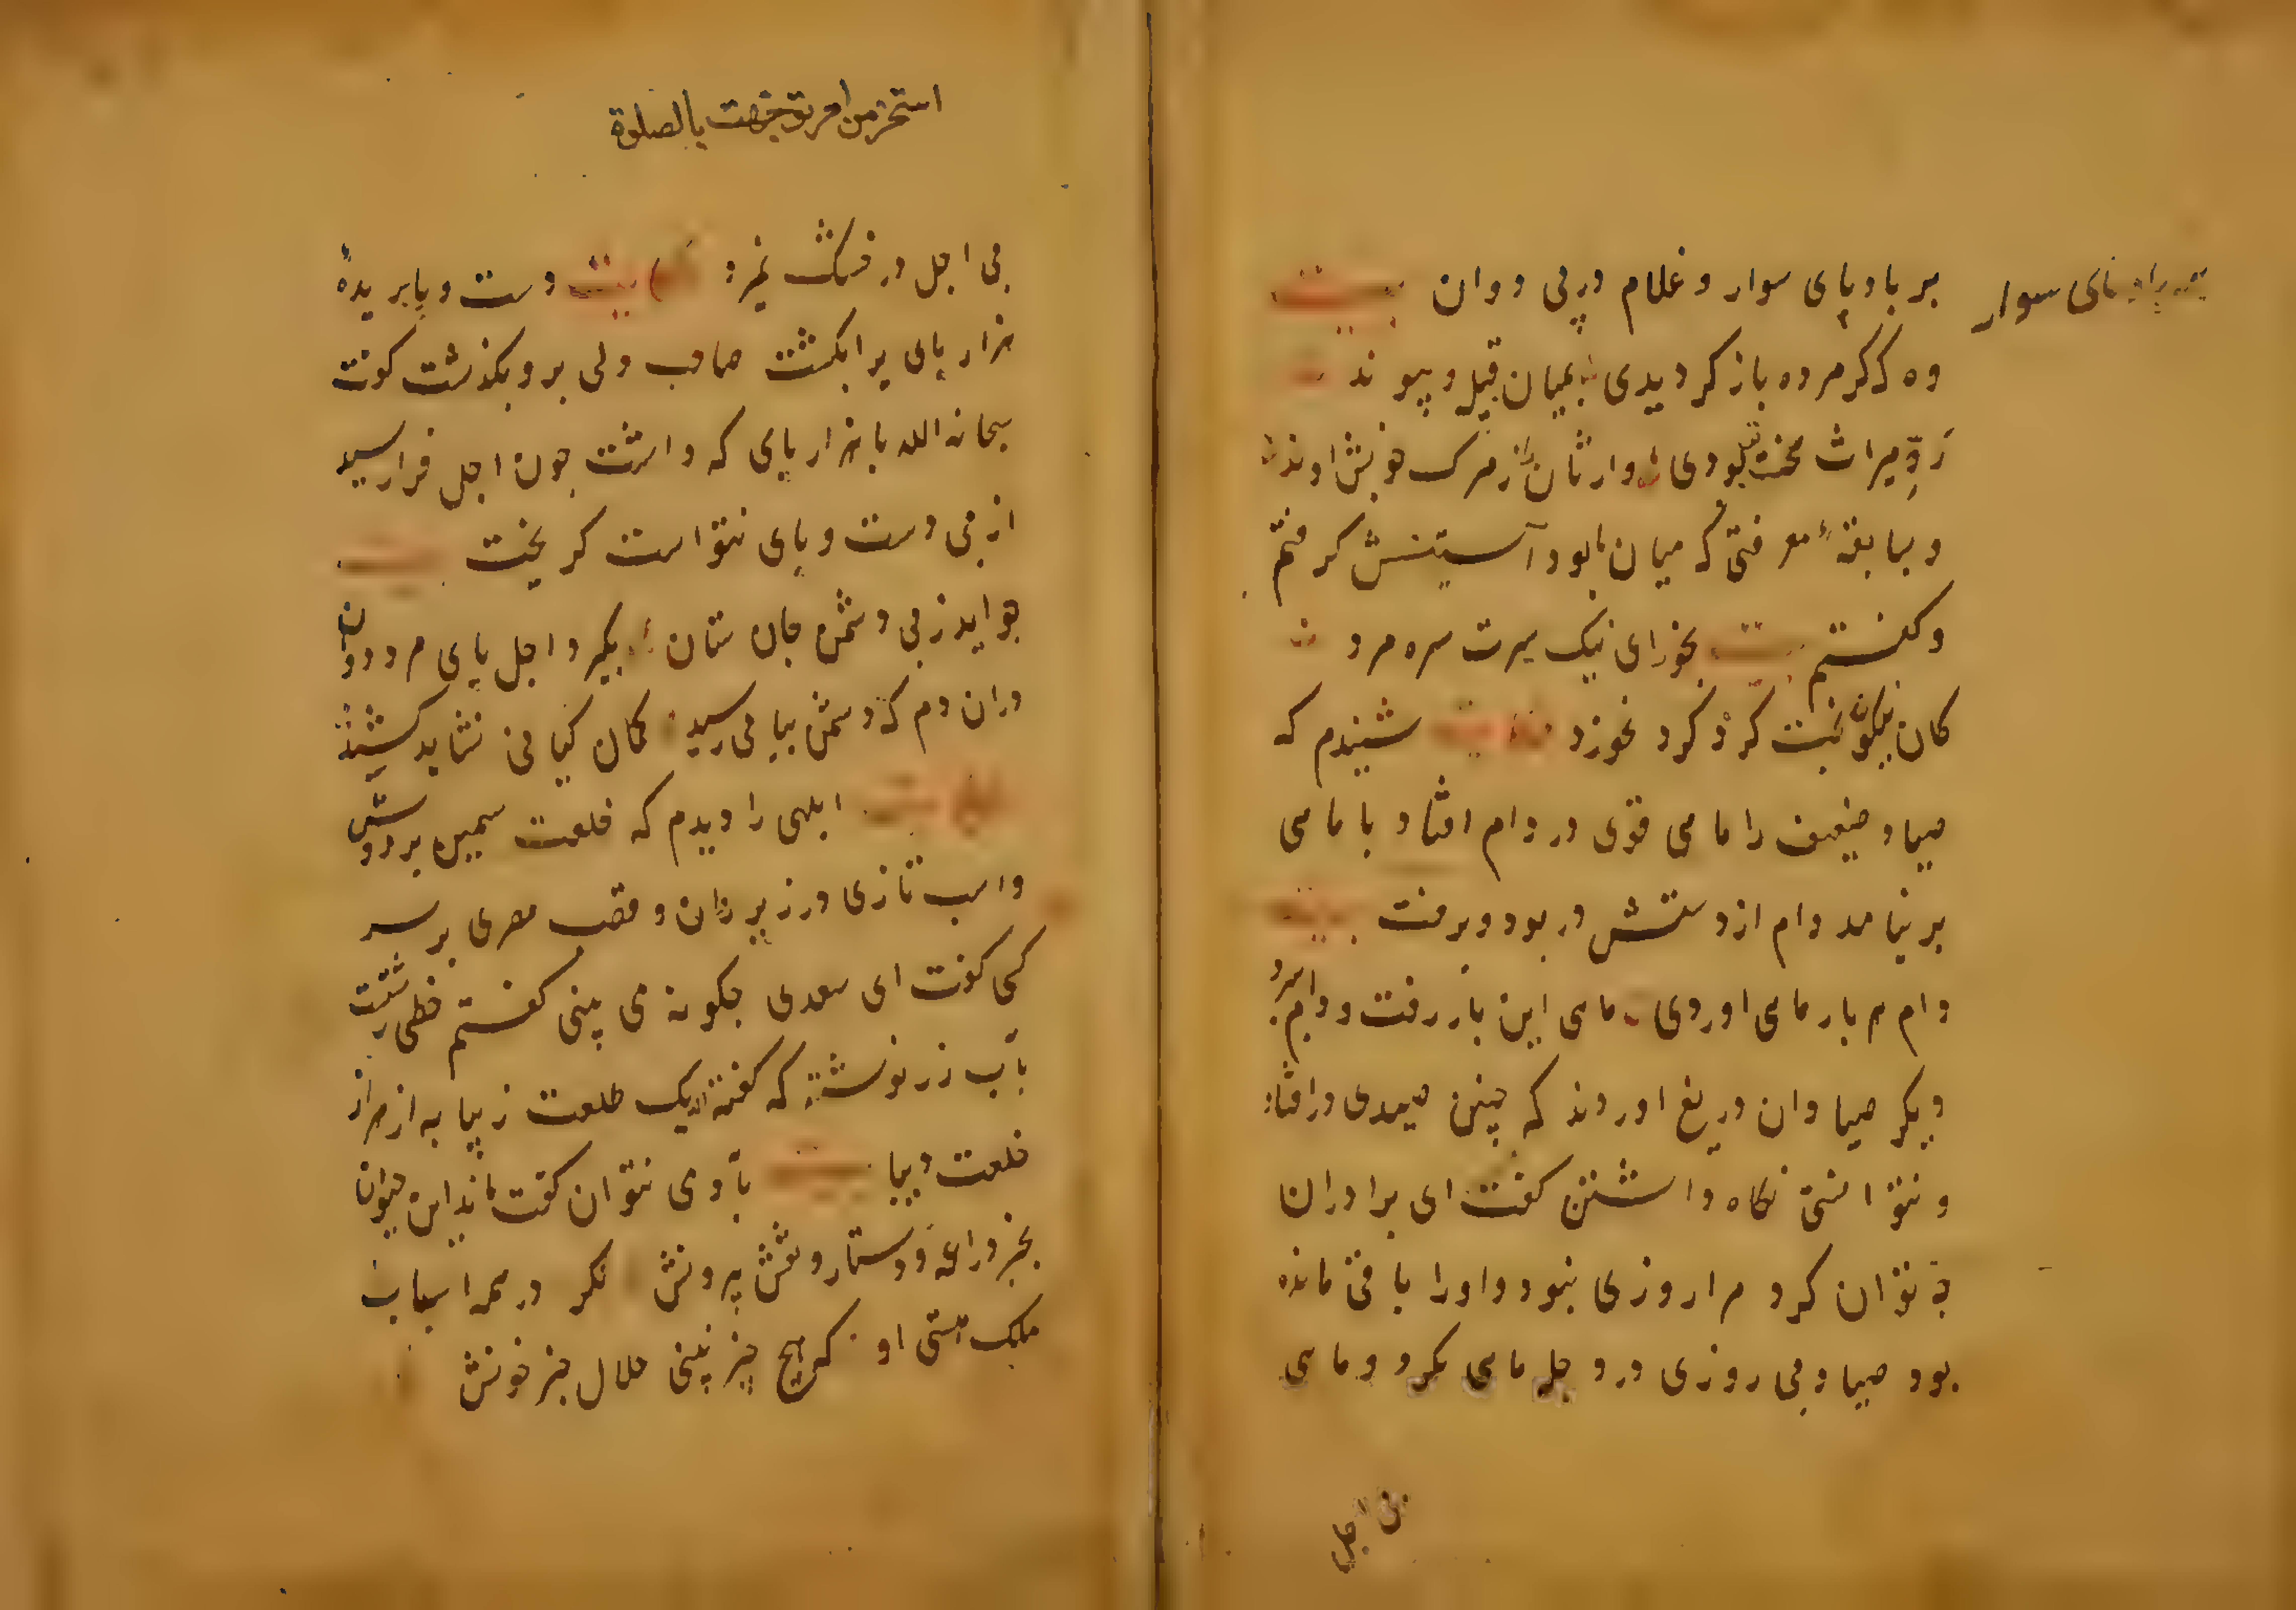 بر بادپای سوار و غلام در پی دوان بیت
وه که گر مرده باز گردیدی بمیان قبیل و پیوند
رد میراث سخت تر بودی وارثان را از مرک خویشاوند
و بسابقهٔ معرفتی که میان ما بود آستینش گرفتم
و گفتم بیت بخور ای نیک سیرت سره مرد
کان نکون بخت گرد کرد نخورد حکایت شنیدم که
صیاد ضعیف را ماهی قوی در دام افتاد با ماهی
بر نیامد دام از دستش در بود و برفت بیت
دام هر بار ماهی اوردی ماهی این بار رفت و دام ببرد
دیگر صیادان دریغ اوردند که چنین صیدی در افتاد
و نتوانستی نگاه داشتن گفت ای برادران
چه توان کرد مرا روزی نبود و او را باقی مانده
بود صیاد بی روزی در دجله ماهی نگیرد و ماهی
بی اجل
استخرمن امر توجهت بالصلوة
بی اجل در خشک نمیرد حکایت دست و پا بریدهٔ
هزار پای را بکشت صاحب دلی برو بگذشت گفت
سبحانه الله با هزار پای که داشت چون اجل فرا رسید
از بی دست و پای نتوانست گریخت بیت
چو اید ز پی دشمن جان ستان بگیرد اجل پای مرد دوان
دران دم که دشمن بیاپی رسید کمان کیانی نشاید کشید
حکایت ابلهی را دیدم که خلعت سمین بر دوش
و اسب تازی در زیر ران و قصب مصری بر سر
کسی گفت ای سعدی چگونه می بینی گفتم خطی زشتست
بآب زر نوشته که گفته اند یک طلعت زیبا به از هزار
خلعت دیبا بیت بآدمی نتوان گفت ماند این حیوان
بجز دراعه و دستار و نقش بیرونش بگرد در همه اسباب
ملک هستی او که هیچ چیز نبینی حلال جز خونش